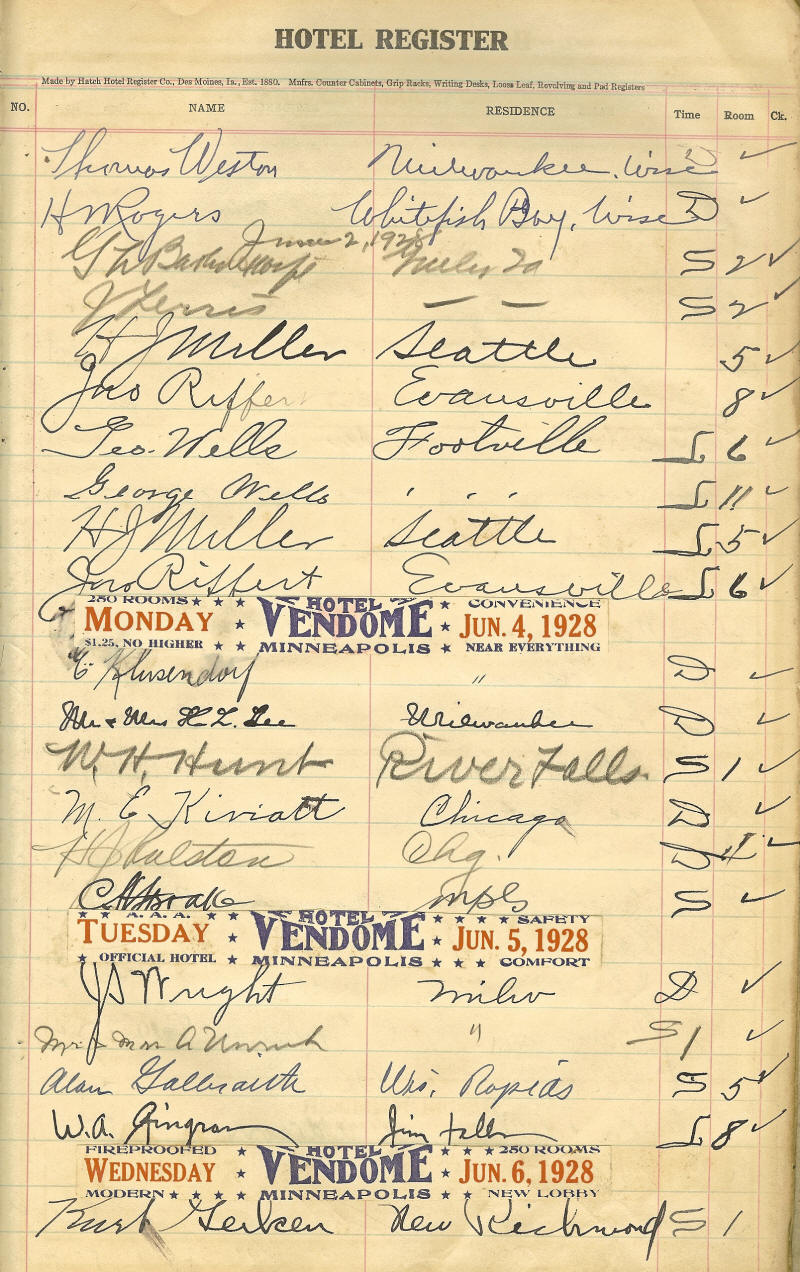 HOTEL REGISTER
Made by Hatch Hotel Register Co., Des Moines, Ia., Est. 1880. Mnfrs. Counter Cabinets, Grip Racks, Writing Desks, Loose Leaf, Revolving and Pad Registers
NO. NAME RESIDENCE Time Room Ck.
Thomas Weston Milwaukee, Wisc D ✓
H W Rogers Whitefish Bay, Wisc D ✓
June 2, 1928
G L S 2 ✓
J Ferris — — S 2 ✓
H J Miller Seattle 5 ✓
Jno Riffer Evansville 8 ✓
Geo. Wells Footville L 6 ✓
George Wells , , , L 11 ✓
H J Miller Seattle L 5 ✓
Jno Riffert Evansville L 6 ✓
250 ROOMS HOTEL CONVENIENCE
MONDAY VENDOME JUN. 4, 1928
$1.25, NO HIGHER MINNEAPOLIS NEAR EVERYTHING
E. Klusendorf " D ✓
Mr & Mrs H. L. Lee Milwaukee D ✓
W. H. Hunt River Falls. S 1 ✓
M. E. Kiviatt Chicago D ✓
H J Ralston Chg. D ✓
Mpls S ✓
A. A. A. HOTEL SAFETY
TUESDAY VENDOME JUN. 5, 1928
OFFICIAL HOTEL MINNEAPOLIS COMFORT
J S Wright Milw D ✓
Mr & Mrs A " S 1 ✓
Alan Galbraith Wis. Rapids S 5 ✓
W. A. Gingras Jim Falls L 8 ✓
FIREPROOFED HOTEL 250 ROOMS
WEDNESDAY VENDOME JUN. 6, 1928
MODERN MINNEAPOLIS NEW LOBBY
Kurt Gerken New Richmond S 1